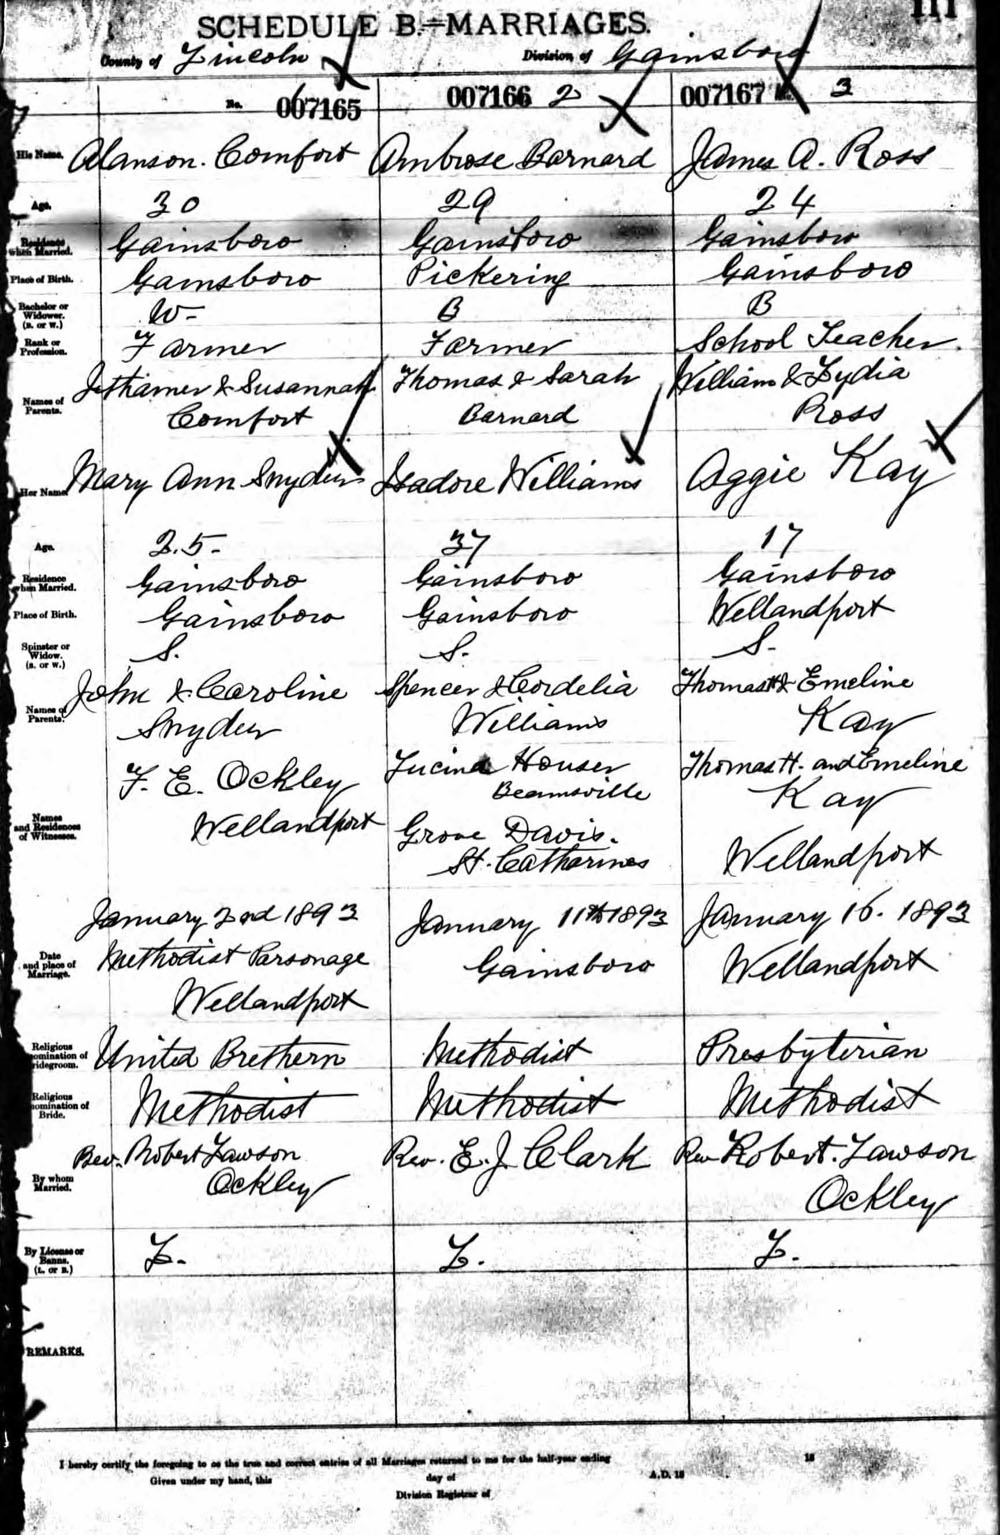 111
SCHEDULE B.—MARRIAGES.
County of Lincoln Division of Gainsboro
No. 007165 007166 2 007167 No. 3
His Name. Alanson. Comfort Ambrose Barnard James A. Ross
Age. 30 29 24
Residence when Married. Gainsboro Gainsboro Gainsboro
Place of Birth. Gainsboro Pickering Gainsboro
Bachelor or Widower. (B. or W.) W- B B
Rank or Profession. Farmer Farmer School Teacher.
Names of Parents. Jethamer & Susannah Thomas & Sarah William & Lydia
Comfort Barnard Ross
Her Name Mary Ann Snyder Isadore Williams Aggie Kay
Age. 25- 37 17
Residence when Married. Gainsboro Gainsboro Gainsboro
Place of Birth. Gainsboro Gainsboro Wellandport
Spinster or Widow. (S. or W.) S. S. S-
Names of Parents. John & Caroline Spencer & Cordelia Thomas H & Emeline
Snyder Williams Kay
Names and Residences of Witnesses. F. E. Ockley Lucinda Houser Thomas H. and Emeline
Beamsville Kay
Wellandport Grove Davis.
St. Catharines Wellandport
Date and place of Marriage. January 2nd 1893 January 11th 1893 January 16. 1893
Methodist Parsonage Gainsboro Wellandport
Wellandport
Religious Denomination of Bridegroom. United Brethern Methodist Presbyterian
Religious Denomination of Bride. Methodist Methodist Methodist
By whom Married. Rev. Robert Lawson Rev. E. J. Clark Rev Robert. Lawson
Ockley Ockley
By License or Banns. (L. or B.) L. L. L.
REMARKS.
I hereby certify the foregoing to be the true and correct entries of all Marriages returned to me for the half-year ending 18
Given under my hand, this day of A.D. 18
Division Registrar of